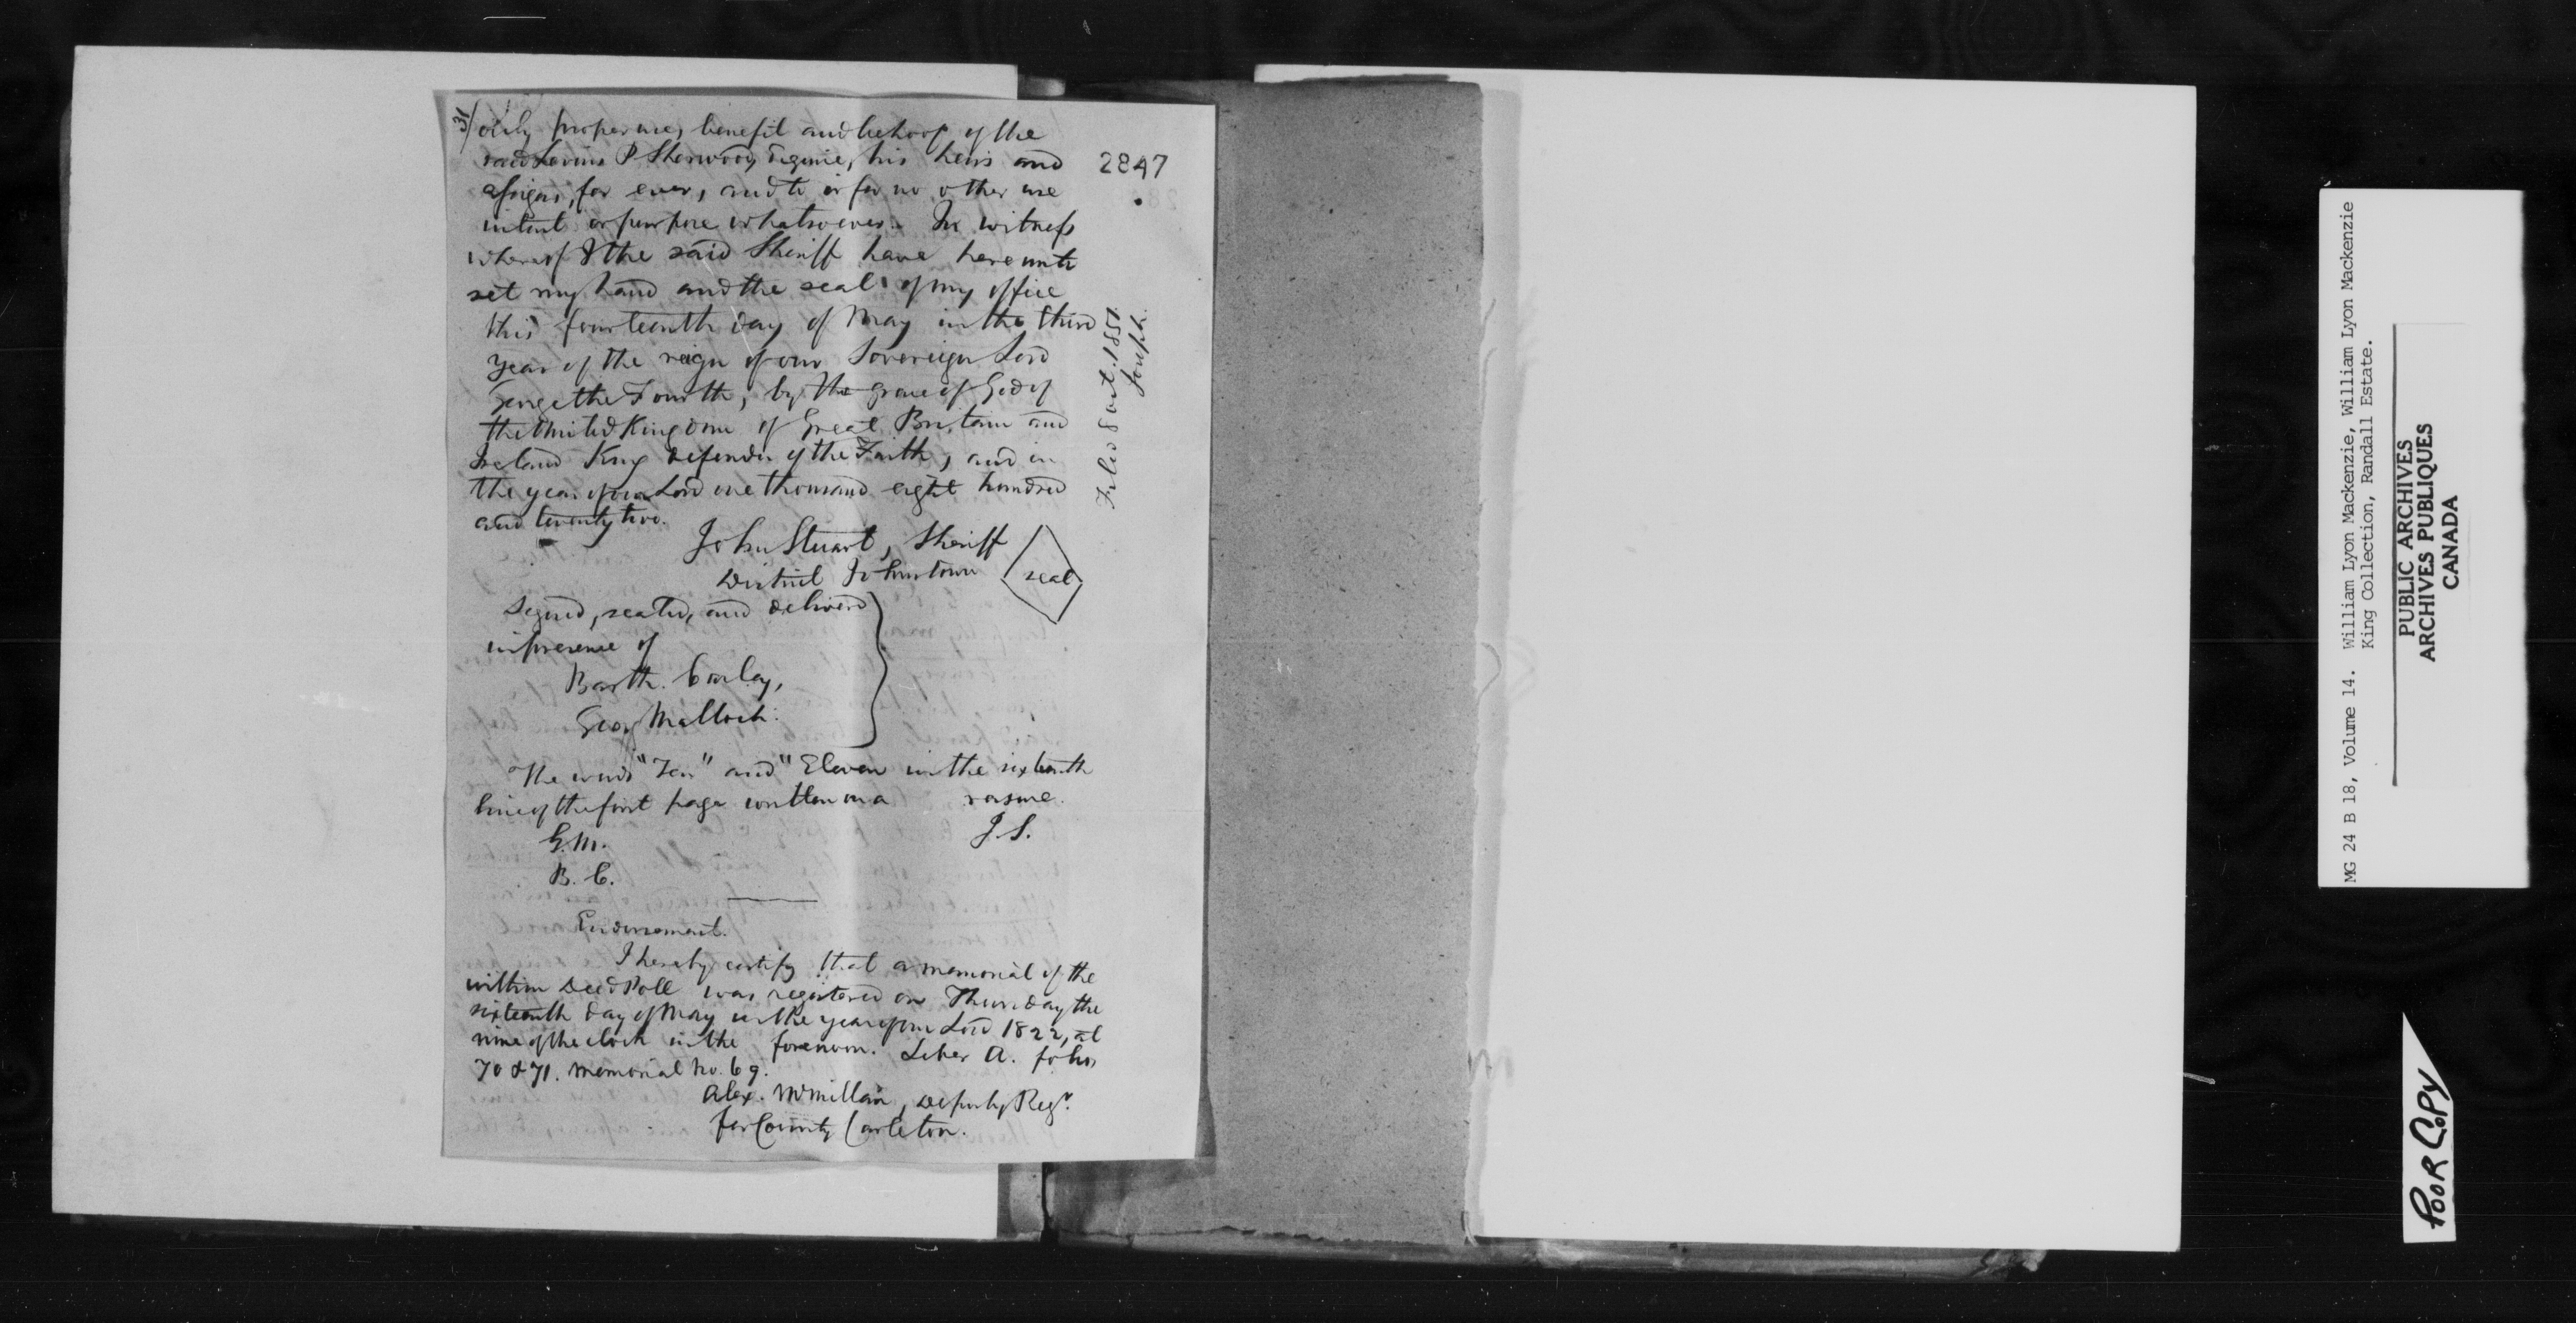 3/
only proper use, benefit and behoof of the
said Levius P Sherwood, Esquire, his heirs and
assigns, for ever, and to or for no other use
intent or purpose whatsoever. In witness
whereof I the said Sheriff have hereunto
set my hand and the seal of my office
this fourteenth day of May in the third
year of the reign of our Sovereign Lord
George the Fourth, by the grace of God of
the United Kingdom of Great Britain and
Ireland King Defender of the Faith, and in
the year of our Lord one thousand eight hundred
and twenty two.
John Stuart, Sheriff
District Johnstown
seal
Signed, sealed, and delivered
in presence of
Barth. Carley,
Geo Malloch.
The words "Ten" and "Eleven in the sixteenth
line of the first page written on a rasure.
G.M. J.S.
B. C.
Endorsement.
I hereby certify that a memorial of the
within Deed Poll was registered on Thursday the
sixteenth day of May in the year of our Lord 1822, at
nine of the clock in the forenoon. Liber A. folios
70 & 71. Memorial No. 69.
Alex. McMillan, Deputy Regr.
for County Carleton.
2847
Filed 8 oct. 1851.
Joseph.
MG 24 B 18, Volume 14. William Lyon Mackenzie, William Lyon Mackenzie
King Collection, Randall Estate.
PUBLIC ARCHIVES
ARCHIVES PUBLIQUES
CANADA
POOR COPY